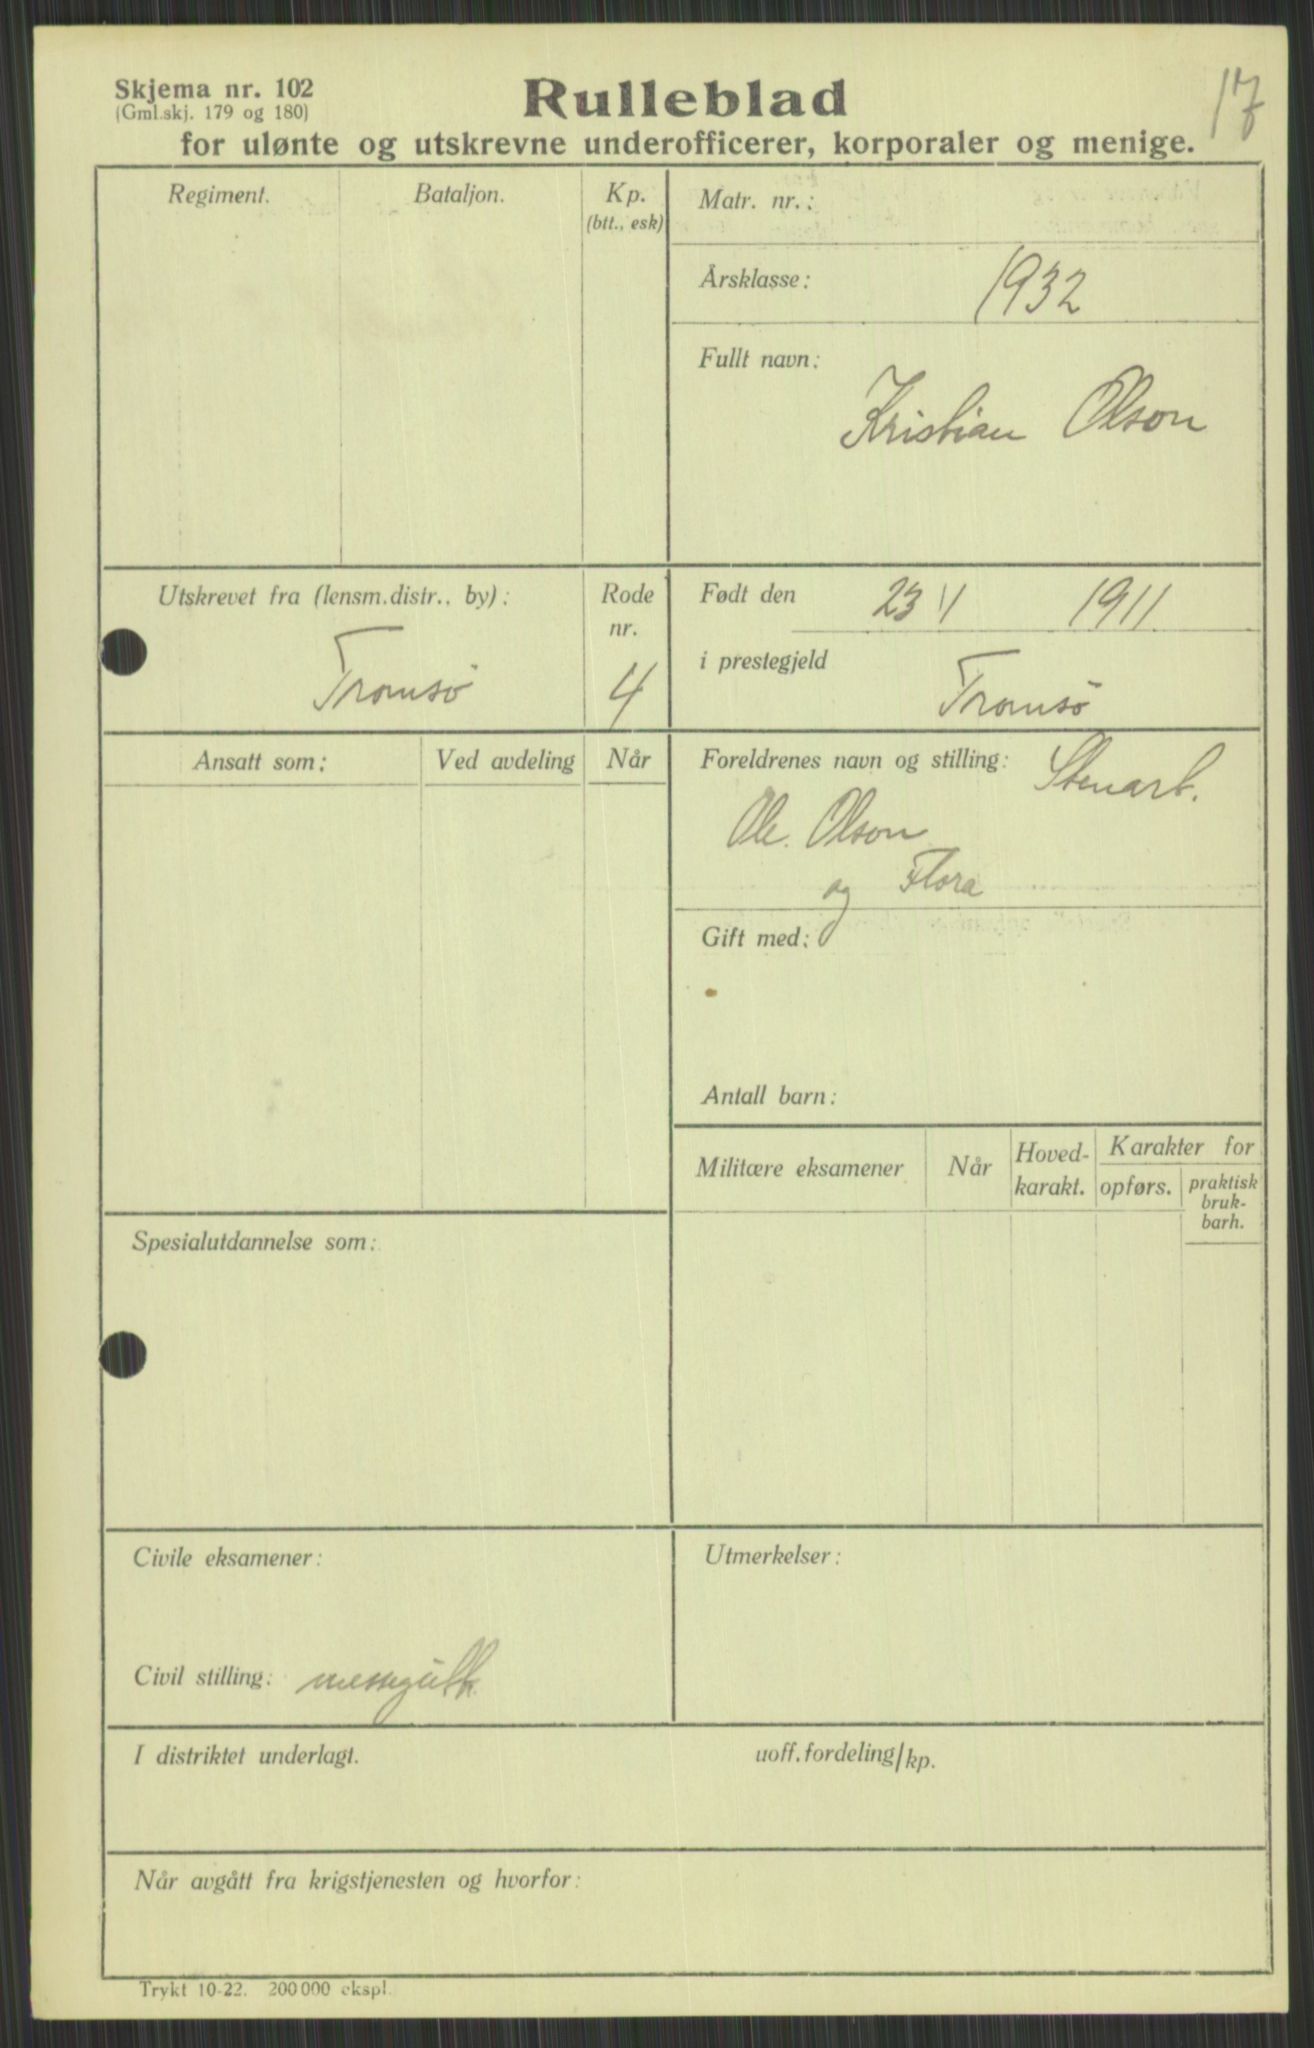 Skjema nr. 102
(Gml.skj. 179 og 180)
Rulleblad
17
for ulønte og utskrevne underofficerer, korporaler og menige.
Regiment.
Bataljon.
Kp.
(btt., esk)
Matr. nr.:
Årsklasse: 1932
Fullt navn:
Kristian Olson
Utskrevet fra (lensm.distr., by):
Tromsö
Rode
nr.
4
Født den 23 1 1911
i prestegjeld
Tromsö
Ansatt som:
Ved avdeling
Når
Foreldrenes navn og stilling: Stenarb.
Ole. Olson
og Flora
Gift med:
Antall barn:
Militære eksamener
Når
Hoved-
karakt.
Karakter for
opførs.
praktisk
bruk-
barh.
Spesialutdannelse som:
Civile eksamener:
Utmerkelser:
Civil stilling: messegutt
I distriktet underlagt.
uoff.fordeling/kp.
Når avgått fra krigstjenesten og hvorfor:
Trykt 10-22. 200 000 ekspl.